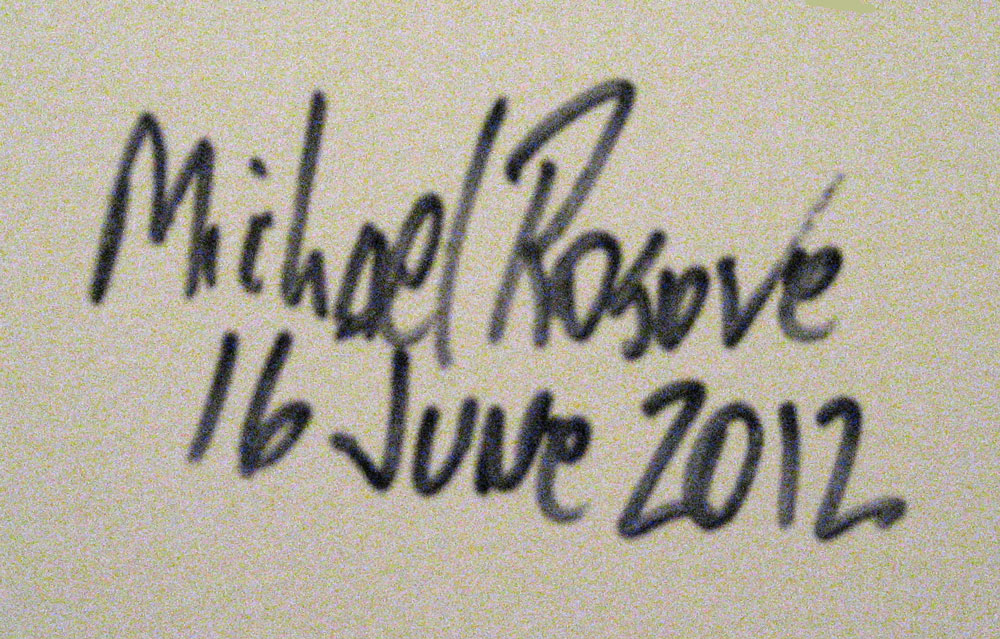 Michael Rosove
16 June 2012